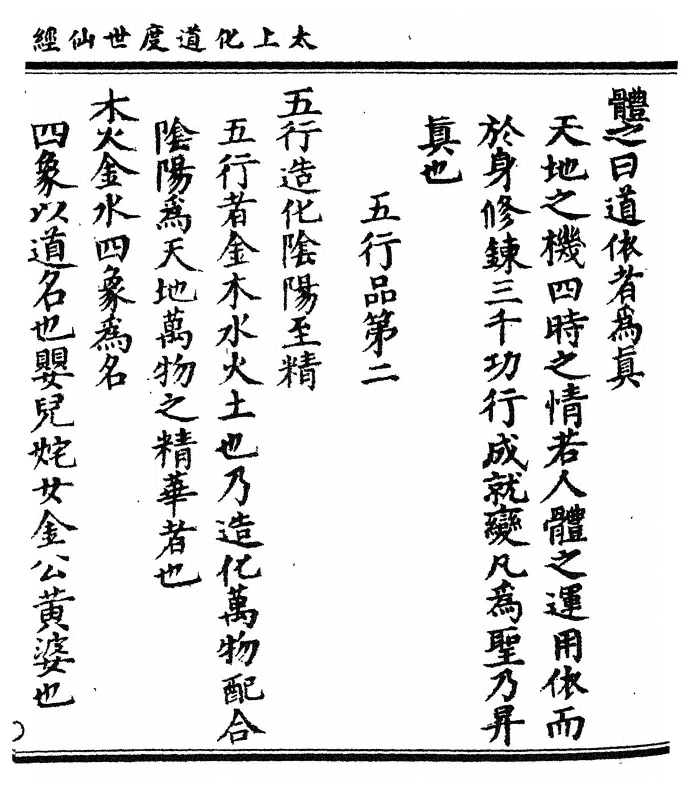 太上化道度世仙經
體之曰道依者為眞
天地之機四時之情若人體之運用依而
於身修鍊三千功行成就變凡為聖乃昇
眞也
五行品第二
五行造化陰陽至精
五行者金木水火土也乃造化萬物配合
陰陽爲天地萬物之精華者也
木火金水四象爲名
四象以道名也嬰兒姹女金公黃婆也